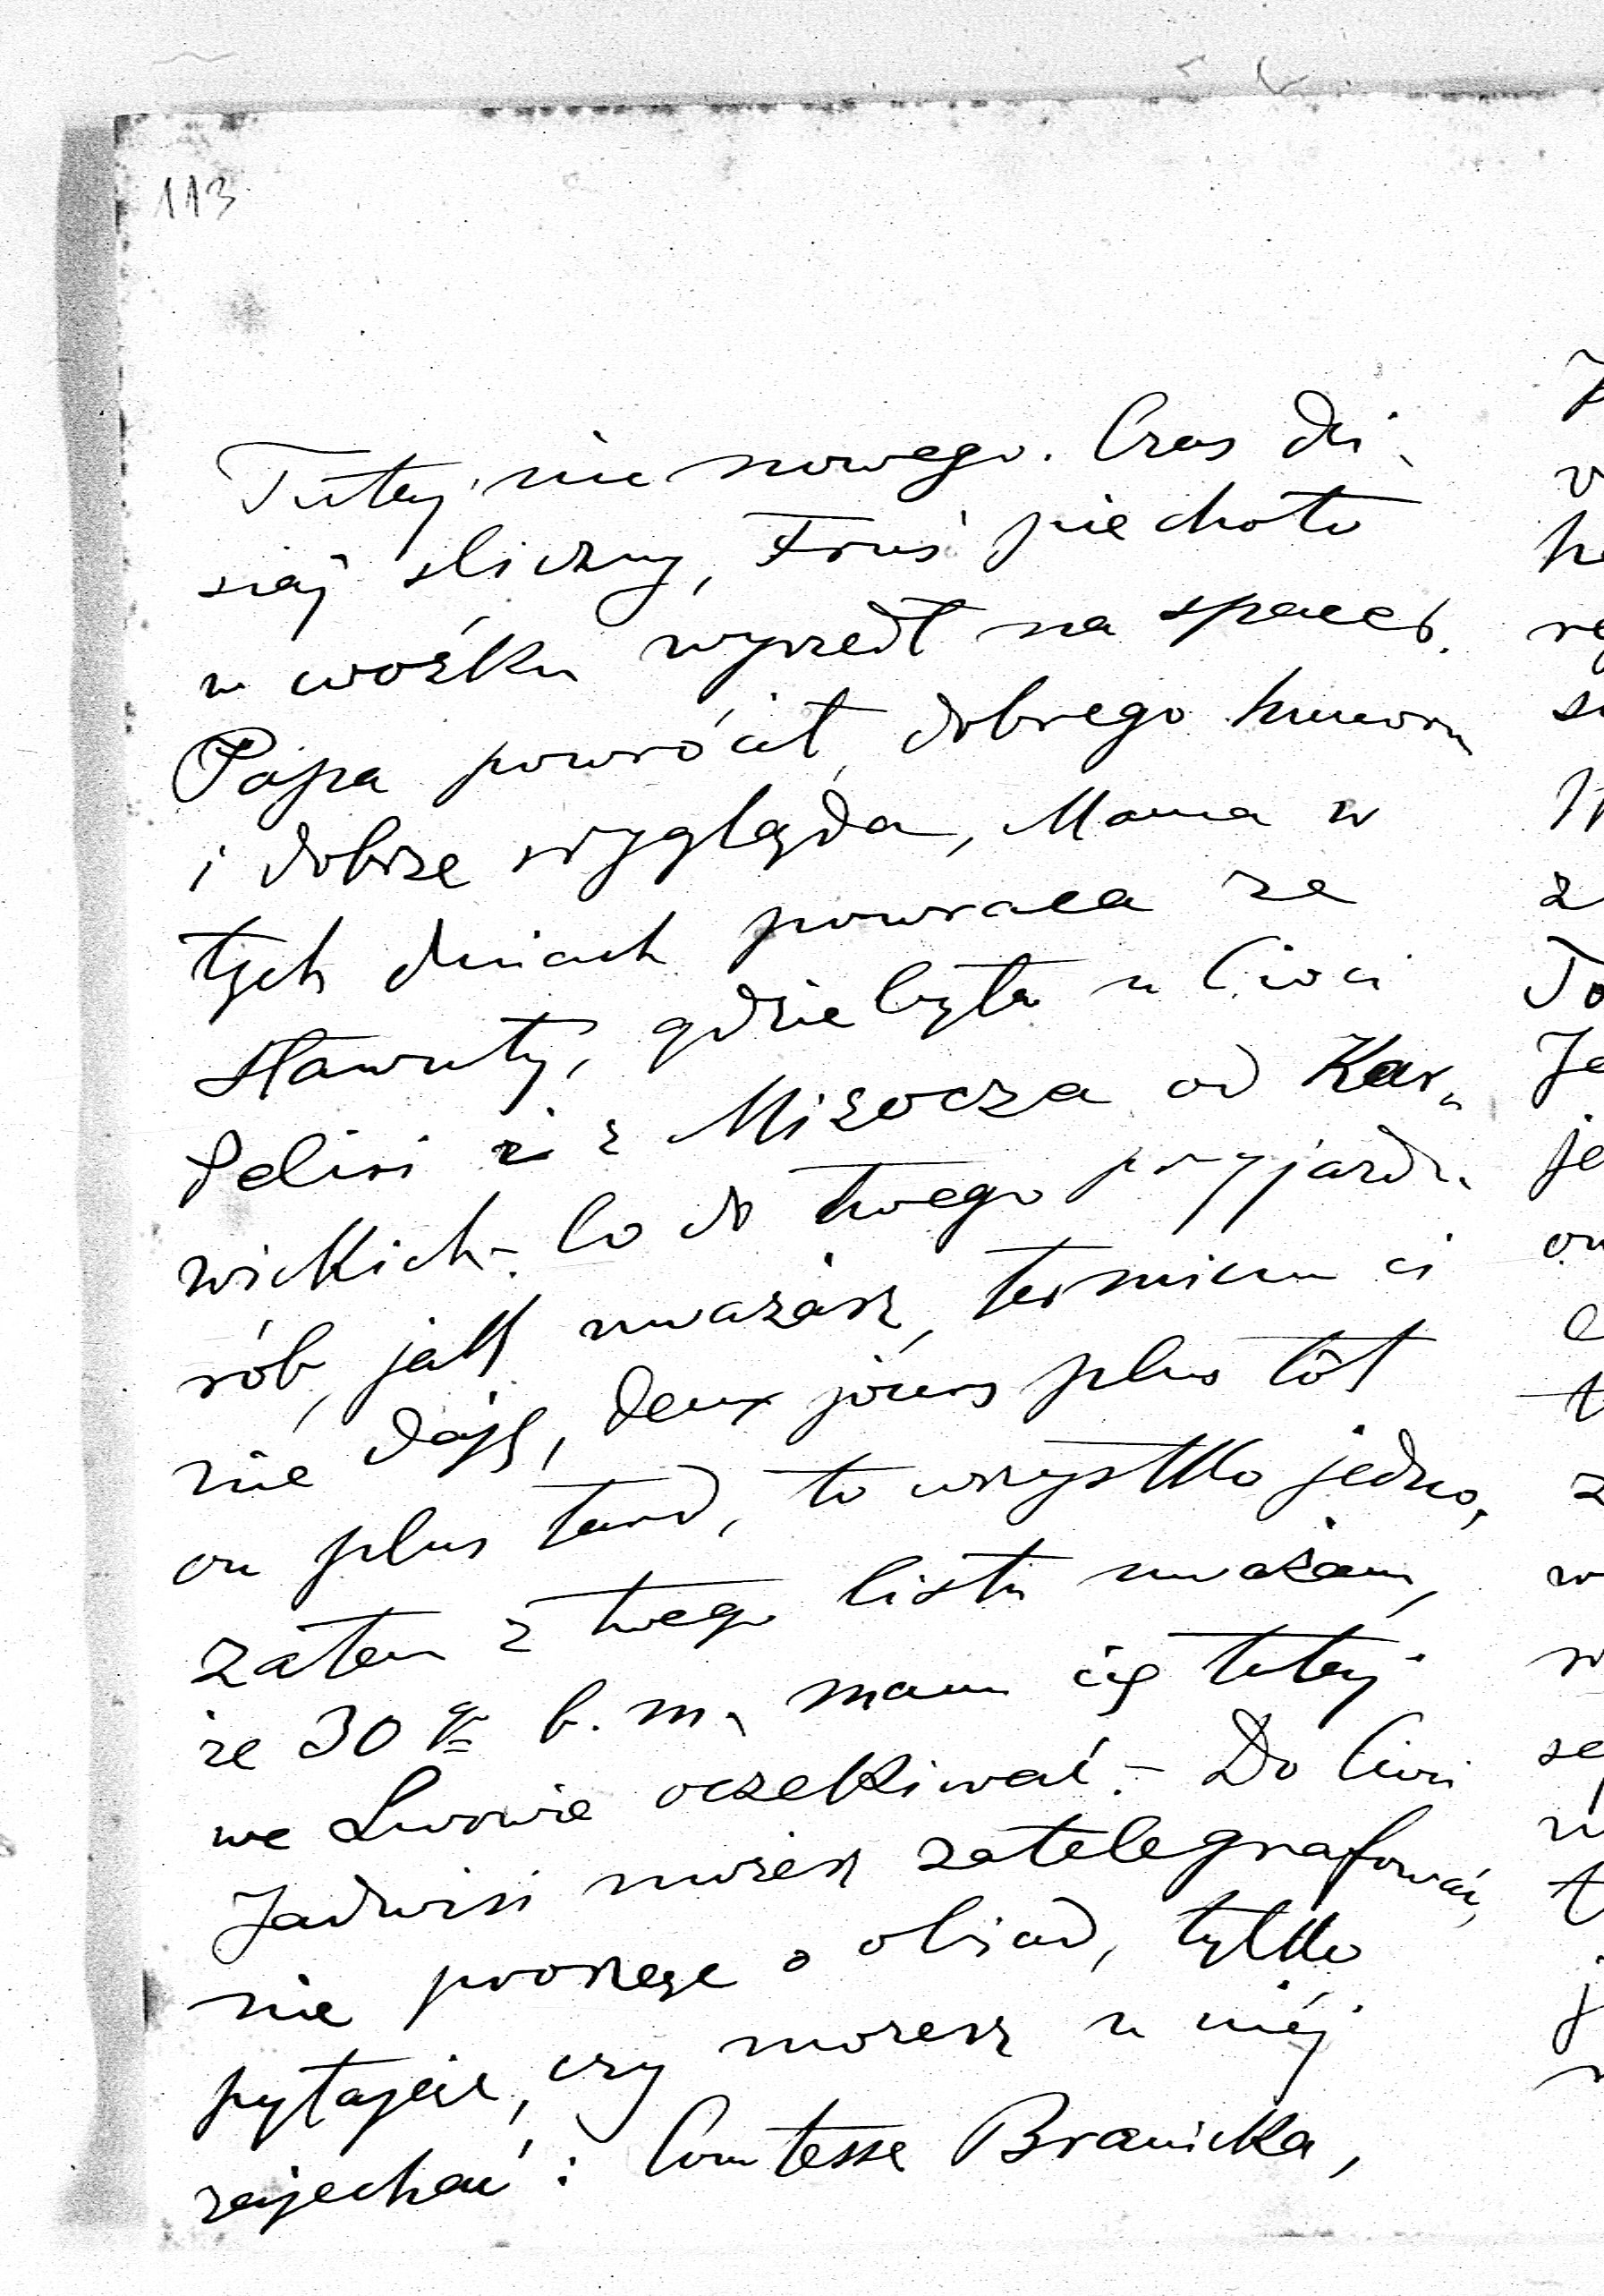 113
Tutaj nic nowego. Czas dzi-
siaj śliczny, Fruś piechoto
w wózku wyszedł na spacer.
Papa powrócił, dobrego humoru
i dobrze wygląda, Mama w
tych dniach powraca ze
Sławuty, gdzie była u Cioci
Felisi i z Mizocza od Kar-
wickich. – Co do twego przyjazdu
rób, jak uważasz, terminu ci
nie daję, deux jours plus tôt
ou plus tard, to wszystko jedno,
zatem z twego listu uważam,
że 30 go b. m. mam cię tutaj
we Lwowie oczekiwać. – Do Cioci
Jadwisi możesz zatelegrafować,
nie proszęc o obiad, tylko
pytając, czy możesz u niéj
zajechać: Comtesse Branicka,